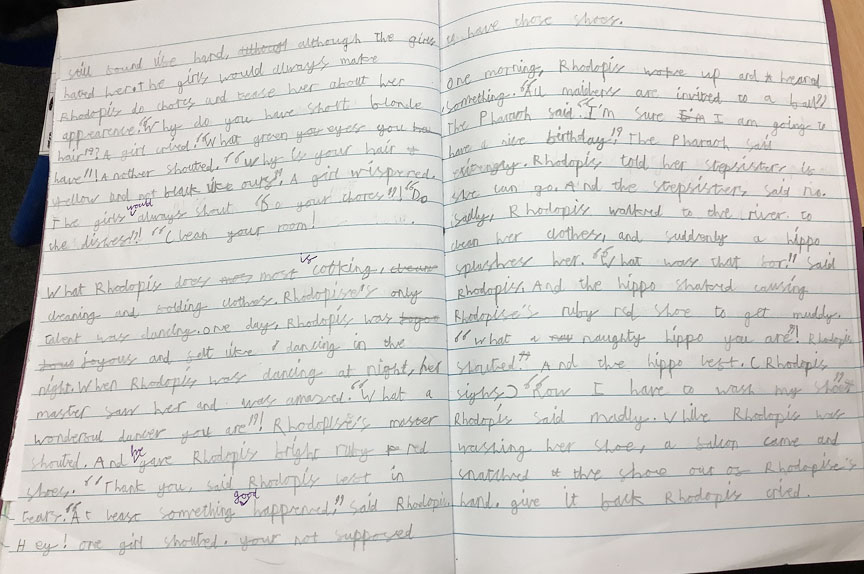 still found life hard, although although the girls
hated her. The girls would always make
Rhodopis do chores and tease her about her
appearence. "Why do you have short blonde
hair"? A girl cried. "What green your eyes you
have"! Another shouted. "Why is your hair
yellow and not black like ours". A girl wispered.
The girls would always shout "Do your chores"! "Do
the dishes"! "Clean your room!
What Rhodopis does most is cooking,
cleaning and folding clothes. Rhodopise's only
talent was dancing. one day, Rhodopis was
joyous and felt like dancing in the
night. When Rhodopis was dancing at night, her
master saw her and was amazed. "What a
wonderoul dancer you are"! Rhodopise's master
shouted. And he gave Rhodopis bright ruby red
shoes. "Thank you, said Rhodopis left in
tears. "At least something good happrened." said Rhodopis.
Hey! one girl shouted. your not supposed
to have those shoes.
one morning, Rhodopis woke up and heared
something. "All maidens are invited to a ball"
The Pharaoh said. "I'm sure I am going to
have a nice birthday". The Pharaoh said
excitingly. Rhodopis told her stepsisters if
she can go. And the stepsisters said no.
sadly, Rhodopis walked to the river to
clean her clothes, and suddenly a hippo
splushes her. "What was that for". said
Rhodopis. And the hippo causing
Rhodopise's ruby red shoe to get muddy.
"What a naughty hippo you are"! Rhodopis
shouted. And the hippo left. (Rhodopis
sighs) "Now I have to wash my shoe"
Rhodopis said madly. While Rhodopis was
washing her shoe, a falcon came and
snatched the shoe out of Rhodopise's
hand. give it back Rhodopis cried.